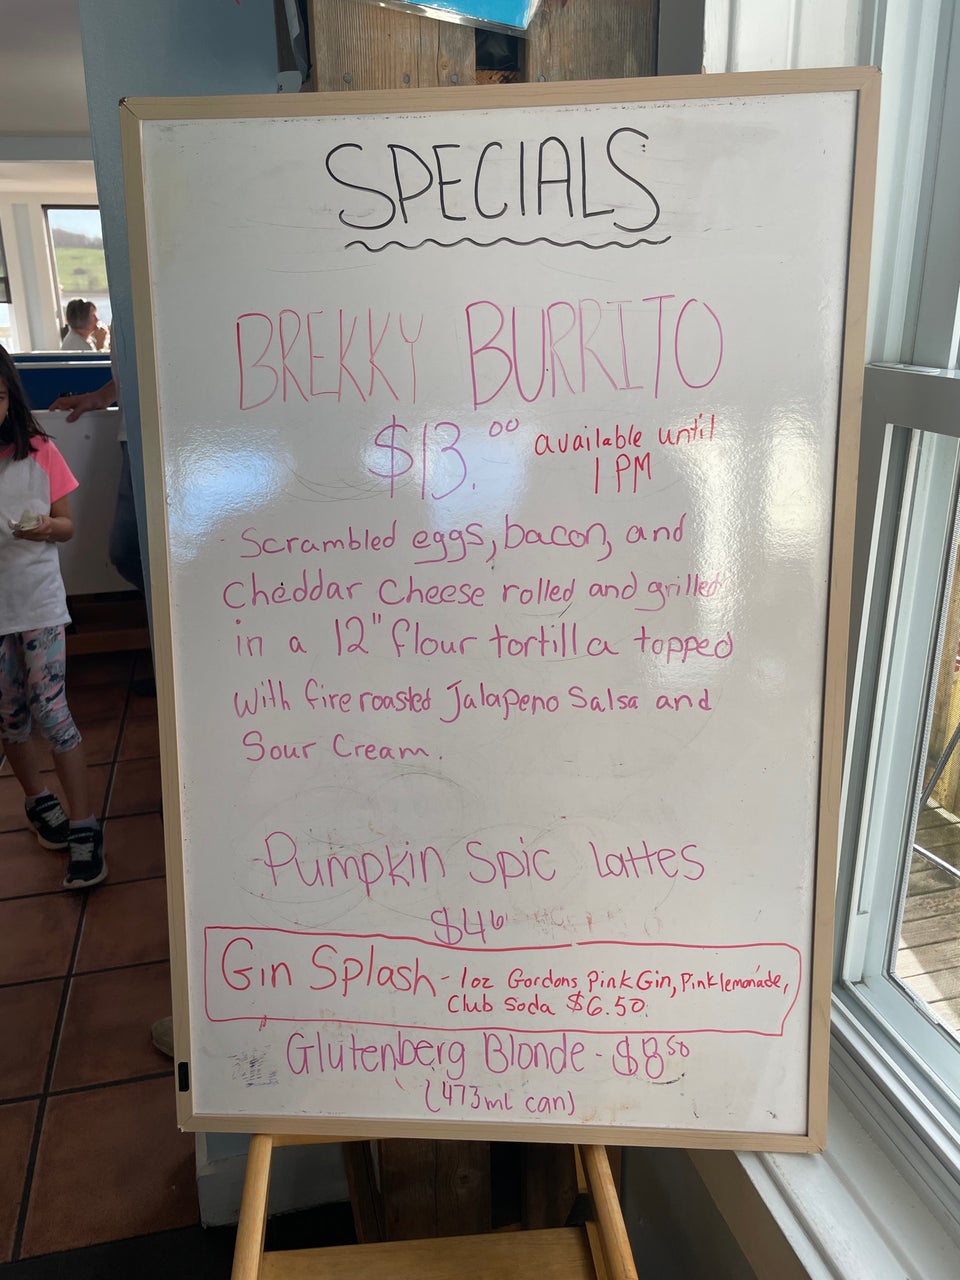 SPECIALS
BREKKY BURRITO
$13.00 available until
1 PM
Scrambled eggs, bacon, and
cheddar cheese rolled and grilled
in a 12" flour tortilla topped
with fire roasted Jalapeno Salsa and
Sour Cream.
Pumpkin Spic lattes
Gin Splash - 1oz Gordons Pink Gin, Pink lemonade,
Club Soda $6.50
Glutenberg Blonde - $8.50
(473ml can)